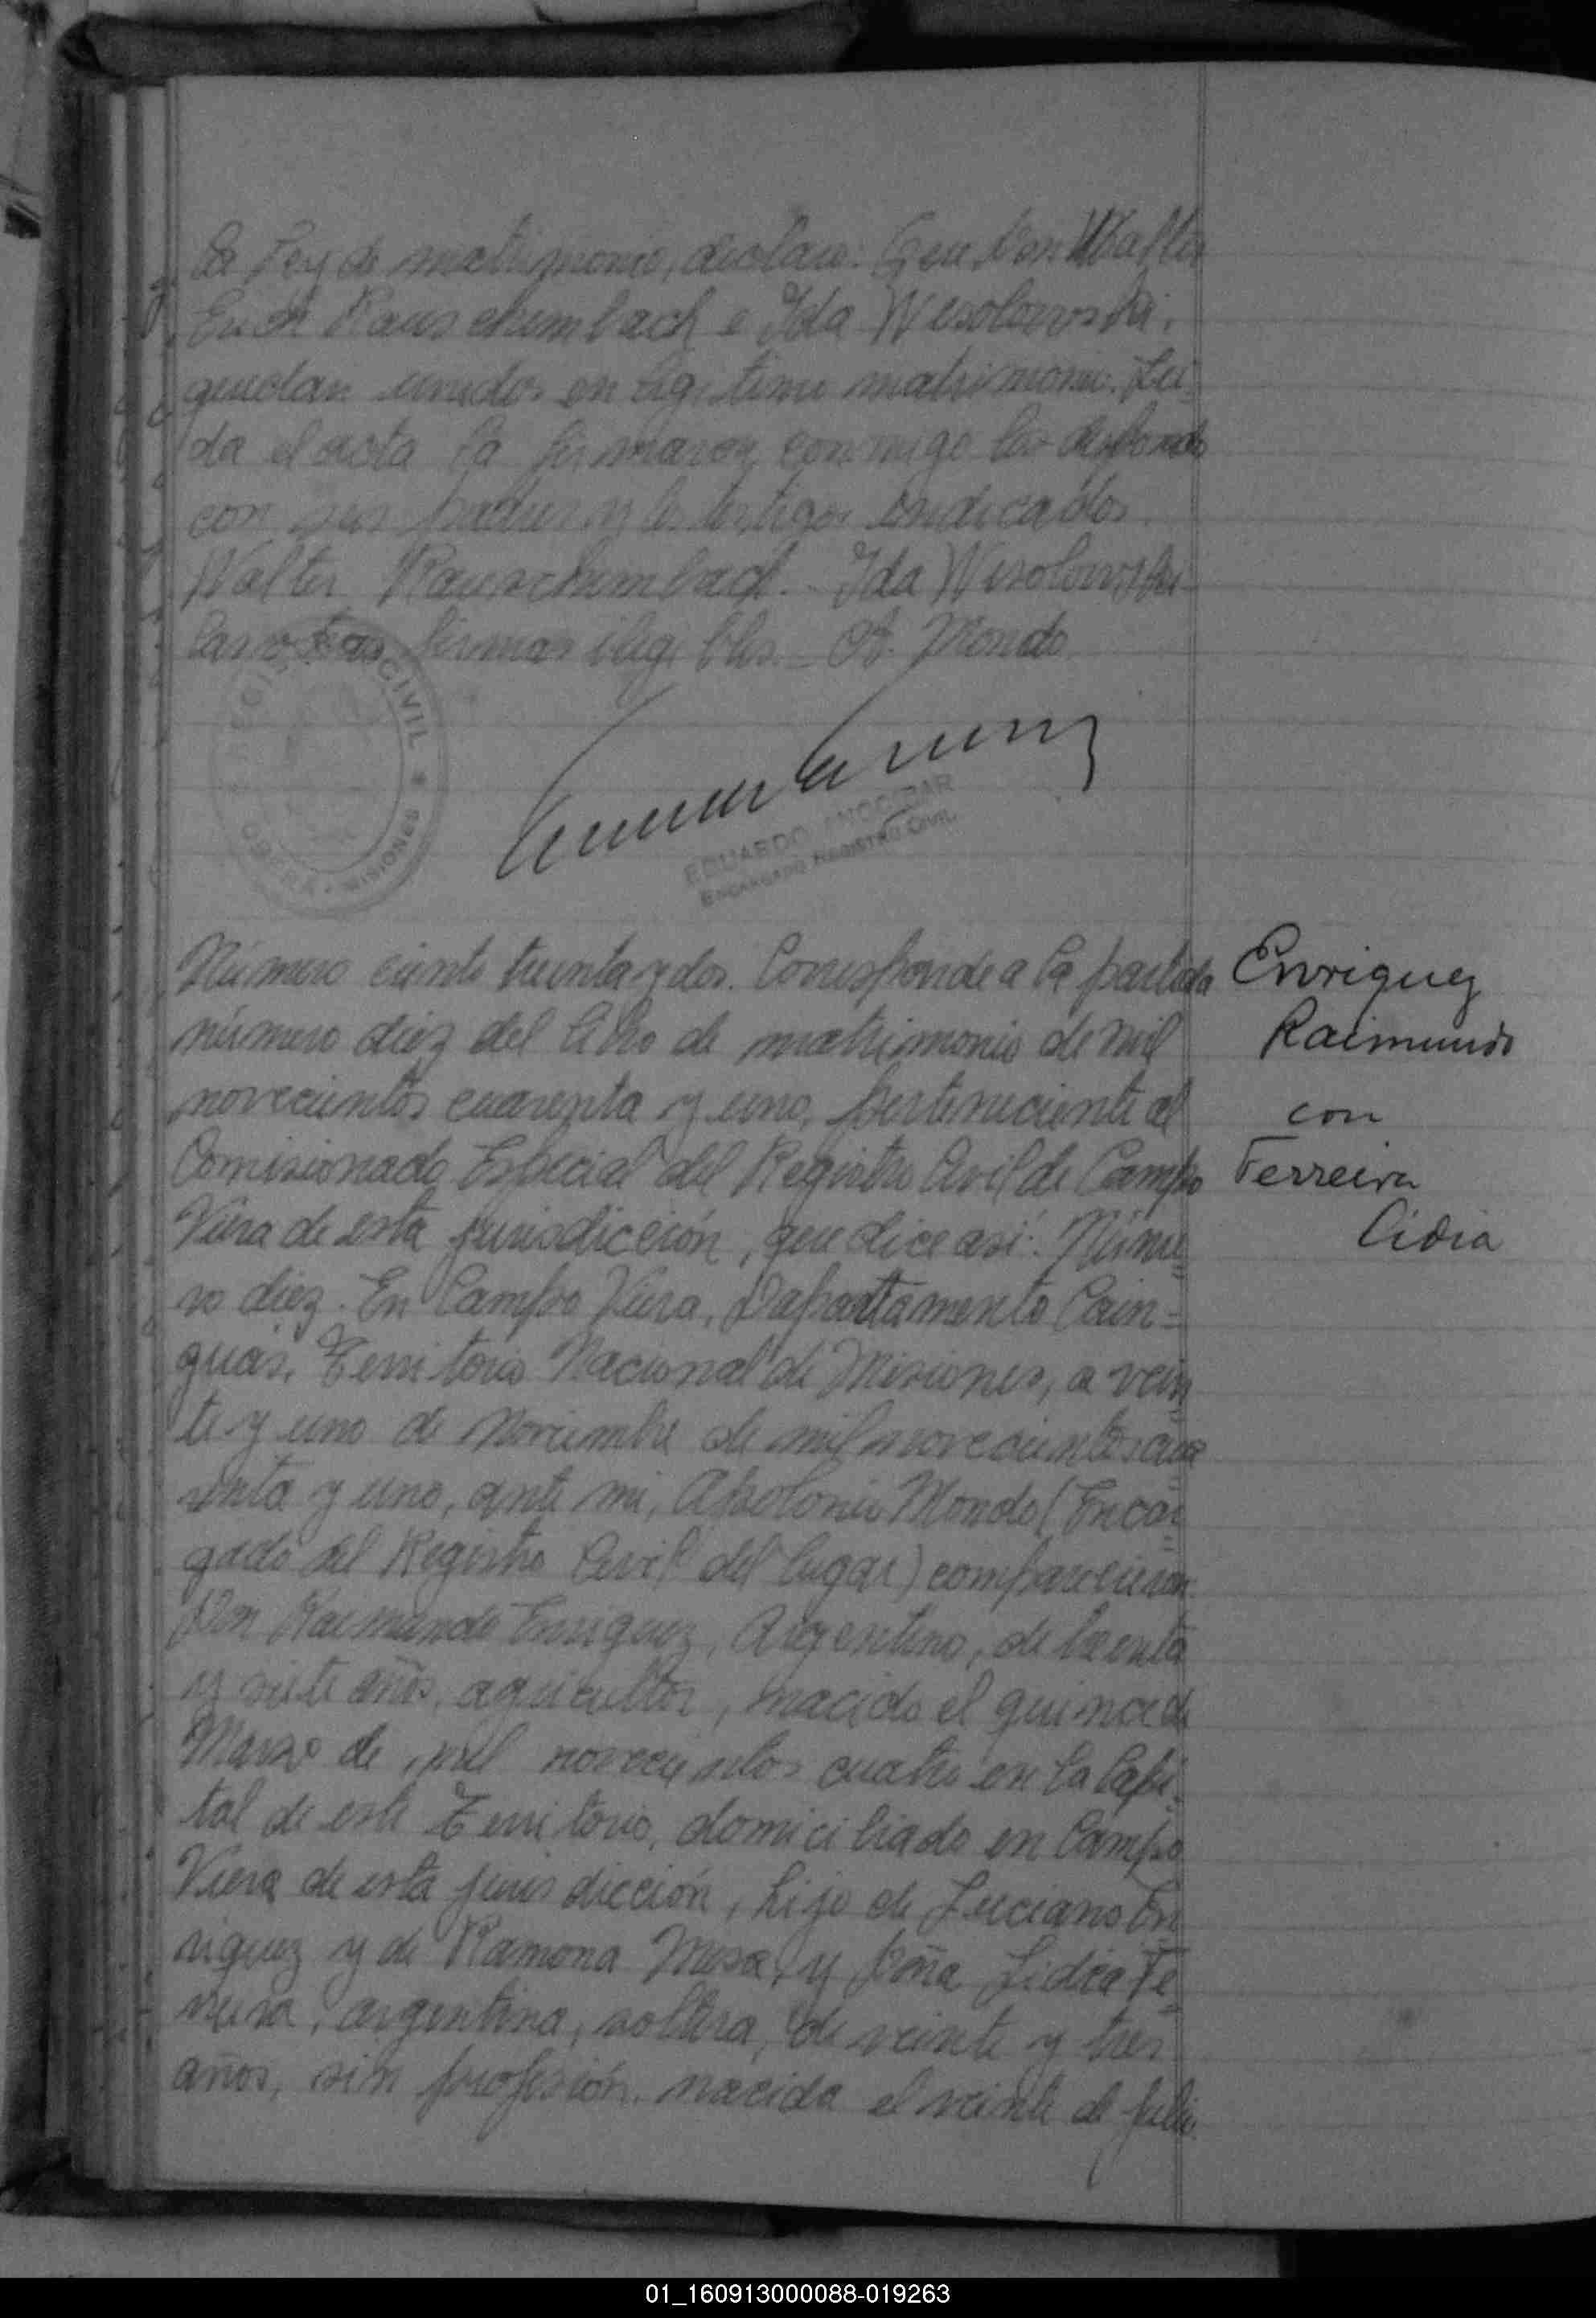 la Ley de matrimonio, declaro: Que Don Walter
Erich Rauschembach e Ida Wesolowski,
quedan unidos en legitimo matrimonio. Lei-
da el acta la firmaron conmigo los
con sus padres y los testigos indicados.
Walter Rauschembach. Ida Wesolowski
las otras firmas ilegibles.- A. Mondo
REGISTRO CIVIL * OBERA - MISIONES *
EDUARDO
ENCARGADO REGISTRO CIVIL
Número ciento treinta y dos. Corresponde a la partida
número diez del libro de matrimonio de mil
novecientos cuarenta y uno, perteneciente al
Comisionado Especial del Registro Civil de Campo
Viera de esta jurisdicción, que dice así: Núme=
ro diez. En Campo Viera, Departamento Cain=
guas, Territorio Nacional de Misiones, a vein=
te y uno de Noviembre de mil novecientos cua
renta y uno, ante mi, Apolonio Mondo (Encar=
gado del Registro Civil del lugar) comparecieron
Don Raimundo Enriquez, Argentino, de treinta
y siete años, agricultor, nacido el quince de
Marzo de mil novecientos cuatro en la Capi=
tal de este Territorio, domiciliado en Campo
Viera de esta jurisdicción, hijo de Luciano En
riquez y de Ramona Mesa, y Doña Lidia Fe=
rreira, argentina, soltera, de veinte y tres
años, sin profesión, nacida el veinte de Julio
Enriquez
Raimundo
con
Ferreira
Lidia
01_160913000088-019263